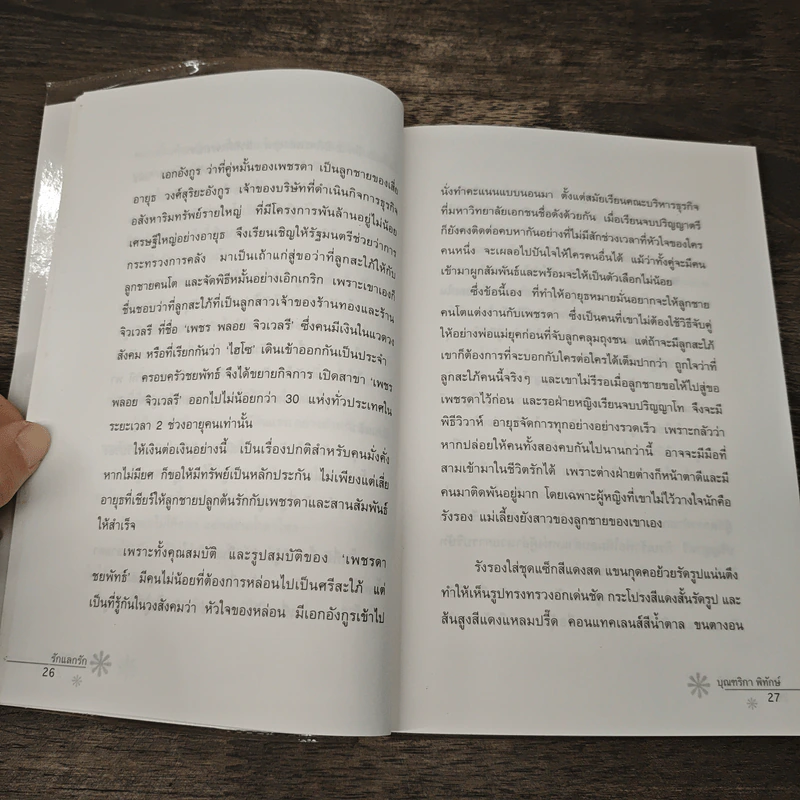 เอกอังกูร ว่าที่คู่หมั้นของเพชรดา เป็นลูกชายของเสี่ย
อายุธ วงศ์สุริยะอังกูร เจ้าของบริษัทที่ดำเนินกิจการธุรกิจ
อสังหาริมทรัพย์รายใหญ่ ที่มีโครงการพันล้านอยู่ไม่น้อย
เศรษฐีใหญ่อย่างอายุธ จึงเรียนเชิญให้รัฐมนตรีช่วยว่าการ
กระทรวงการคลัง มาเป็นเถ้าแก่สู่ขอว่าที่ลูกสะใภ้ให้กับ
ลูกชายคนโต และจัดพิธีหมั้นอย่างเอิกเกริก เพราะเขาเองก็
ชื่นชอบว่าที่ลูกสะใภ้ที่เป็นลูกสาวเจ้าของร้านทองและร้าน
จิวเวลรี ที่ชื่อ ‘เพชร พลอย จิวเวลรี’ ซึ่งคนมีเงินในแวดวง
สังคม หรือที่เรียกกันว่า ‘ไฮโซ’ เดินเข้าออกกันเป็นประจำ
ครอบครัวชยพัทธ์ จึงได้ขยายกิจการ เปิดสาขา ‘เพชร
พลอย จิวเวลรี’ ออกไปไม่น้อยกว่า 30 แห่งทั่วประเทศใน
ระยะเวลา 2 ช่วงอายุคนเท่านั้น
ให้เงินต่อเงินอย่างนี้ เป็นเรื่องปกติสำหรับคนมั่งคั่ง
หากไม่มียศ ก็ขอให้มีทรัพย์เป็นหลักประกัน ไม่เพียงแต่เสี่ย
อายุธที่เชียร์ให้ลูกชายปลูกต้นรักกับเพชรดาและสานสัมพันธ์
ให้สำเร็จ
เพราะทั้งคุณสมบัติ และรูปสมบัติของ ‘เพชรดา
ชยพัทธ์’ มีคนไม่น้อยที่ต้องการหล่อนไปเป็นศรีสะใภ้ แต่
เป็นที่รู้กันในวงสังคมว่า หัวใจของหล่อน มีเอกอังกูรเข้าไป
รักแลกรัก
26
นั่งทำคะแนนแบบนอนมา ตั้งแต่สมัยเรียนคณะบริหารธุรกิจ
ที่มหาวิทยาลัยเอกชนชื่อดังด้วยกัน เมื่อเรียนจบปริญญาตรี
ก็ยังคงติดต่อคบหากันอย่างที่ไม่มีสักช่วงเวลาที่หัวใจของใคร
คนหนึ่ง จะเผลอไปปันใจให้ใครคนอื่นได้ แม้ว่าทั้งคู่จะมีคน
เข้ามาผูกสัมพันธ์และพร้อมจะให้เป็นตัวเลือกไม่น้อย
ซึ่งข้อนี้เอง ที่ทำให้อายุธหมายมั่นอยากจะให้ลูกชาย
คนโตแต่งงานกับเพชรดา ซึ่งเป็นคนที่เขาไม่ต้องใช้วิธีจับคู่
ให้อย่างพ่อแม่ยุคก่อนที่จับลูกคลุมถุงชน แต่ถ้าจะมีลูกสะใภ้
เขาก็ต้องการที่จะบอกกับใครต่อใครได้เต็มปากว่า ถูกใจว่าที่
ลูกสะใภ้คนนี้จริงๆ และเขาไม่รีรอเมื่อลูกชายขอให้ไปสู่ขอ
เพชรดาไว้ก่อน และรอฝ่ายหญิงเรียนจบปริญญาโท จึงจะมี
พิธีวิวาห์ อายุธจัดการทุกอย่างอย่างรวดเร็ว เพราะกลัวว่า
หากปล่อยให้คนทั้งสองคบกันไปนานกว่านี้ อาจจะมีมือที่
สามเข้ามาในชีวิตรักได้ เพราะต่างฝ่ายต่างก็หน้าตาดีและมี
คนมาติดพันอยู่มาก โดยเฉพาะผู้หญิงที่เขาไม่ไว้วางใจนักคือ
รังรอง แม่เลี้ยงยังสาวของลูกชายของเขาเอง
รังรองใส่ชุดแซ็กสีแดงสด แขนกุดคอย้วยรัดรูปแน่นตึง
ทำให้เห็นรูปทรงทรวงอกเด่นชัด กระโปรงสีแดงสั้นรัดรูป และ
ส้นสูงสีแดงแหลมปรี๊ด คอนแทคเลนส์สีน้ำตาล ขนตางอน
บุณฑริกา พิทักษ์
27